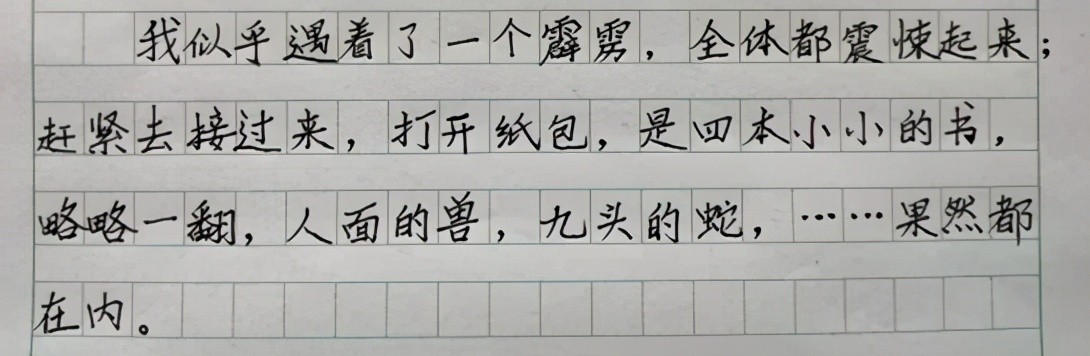 我似乎遇着了一个霹雳，全体都震悚起来；
赶紧去接过来，打开纸包，是四本小小的书，
略略一翻，人面的兽，九头的蛇，……果然都
在内。